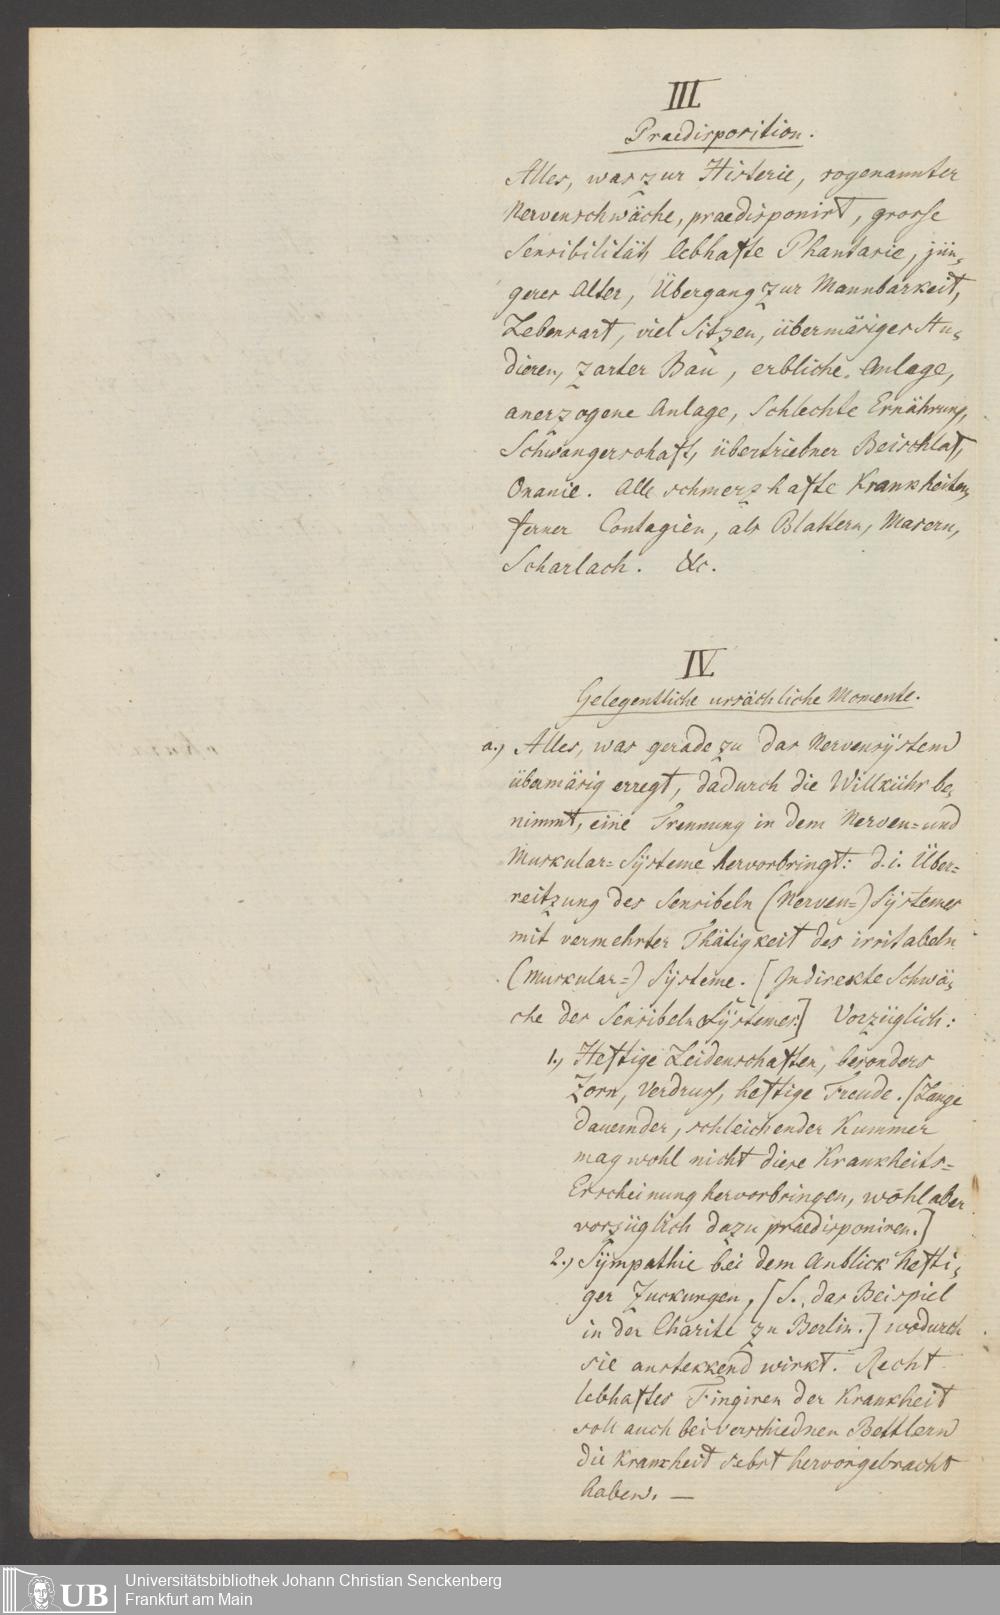 III
Praedisposition.
Alles, was zur Histerie, sogenannter
Nervenschwäche, praedisponirt, grosse
Sensibilität, lebhafte Phantasie, jün,
geres Alter, Übergang zur Mannbarkeit,
Lebensart, viel Sitzen, übermäsiges Stu,
dieren, zarter Bau, erbliche Anlage,
anerzogene Anlage, Schlechte Ernährung,
Schwangerschaft, übertriebner Beischlaf,
Onanie. Alle schmerzhafte Krankheiten,
ferner Contagien, als Blattern, Masern,
Scharlach. &c.
IV
Gelegentliche ursächliche Momente.
a., Alles, was geradezu das Nervensÿstem
übermäsig erregt, dadurch die Willkühr be,
nimmt, eine Trennung in dem Nerven= und
Muskular=Sÿsteme hervorbringt: d. i. Über=
reitzung des Sensibeln (Nerven=) Sÿstemes
mit vermehrter Thätigkeit des irritabeln
(Muskular=) Sÿsteme. [Indirekte Schwä,
che des Sensibeln Sÿstemes.] Vorzüglich:
1., Heftige Leidenschaften, besonders
Zorn, Verdruss, heftige Freude. [Lange
dauernder, schleichender Kummer
mag wohl nicht diese Krankheits=
Erscheinung hervorbringen, wohl aber
vorzüglich dazu praedisponiren.]
2., Sÿmpathie bei dem Anblick hefti,
ger Zuckungen, [S. das Beispiel
in der Charite zu Berlin.] wodurch
sie anstekkend wirkt. Recht
lebhaftes Fingiren der Krankheit
soll auch bei verschiednen Bettlern
die Krankheit selbst hervorgebracht
haben. —
UB
Universitätsbibliothek Johann Christian Senckenberg
Frankfurt am Main